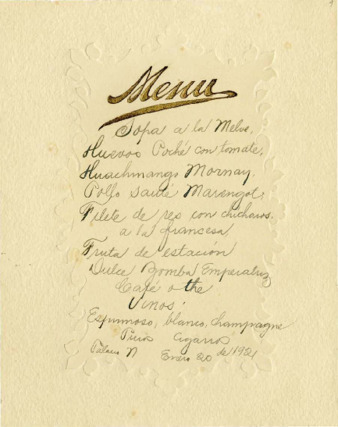 Menu
Sopa a la Melva.
Huevos Poché con tomate.
Huachinango Mornay.
Pollo Sauté Marengo.
Filete de res con chicharos.
a la francesa
Fruta de estación
Dulce Bomba Emperatriz
Café o the
Vinos:
Espumoso, blanco, champagne
Puros Cigarros
Palacio N Enero 20 de 1921